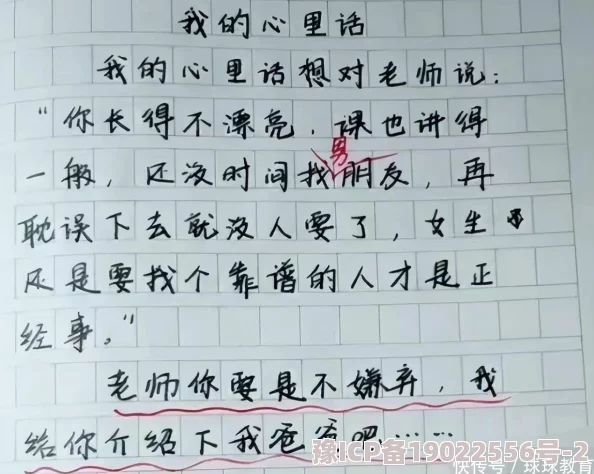 我的心里话
我的心里话想对老师说：
“你长得不漂亮，课也讲得
一般，还没时间找男朋友，再
耽误下去就没人要了，女生
还是要找个靠谱的人才是正
经事。”
老师你要是不嫌弃，我
给你介绍下我爸爸吧……
豫ICP备19022556号-2
快传号/球球教育